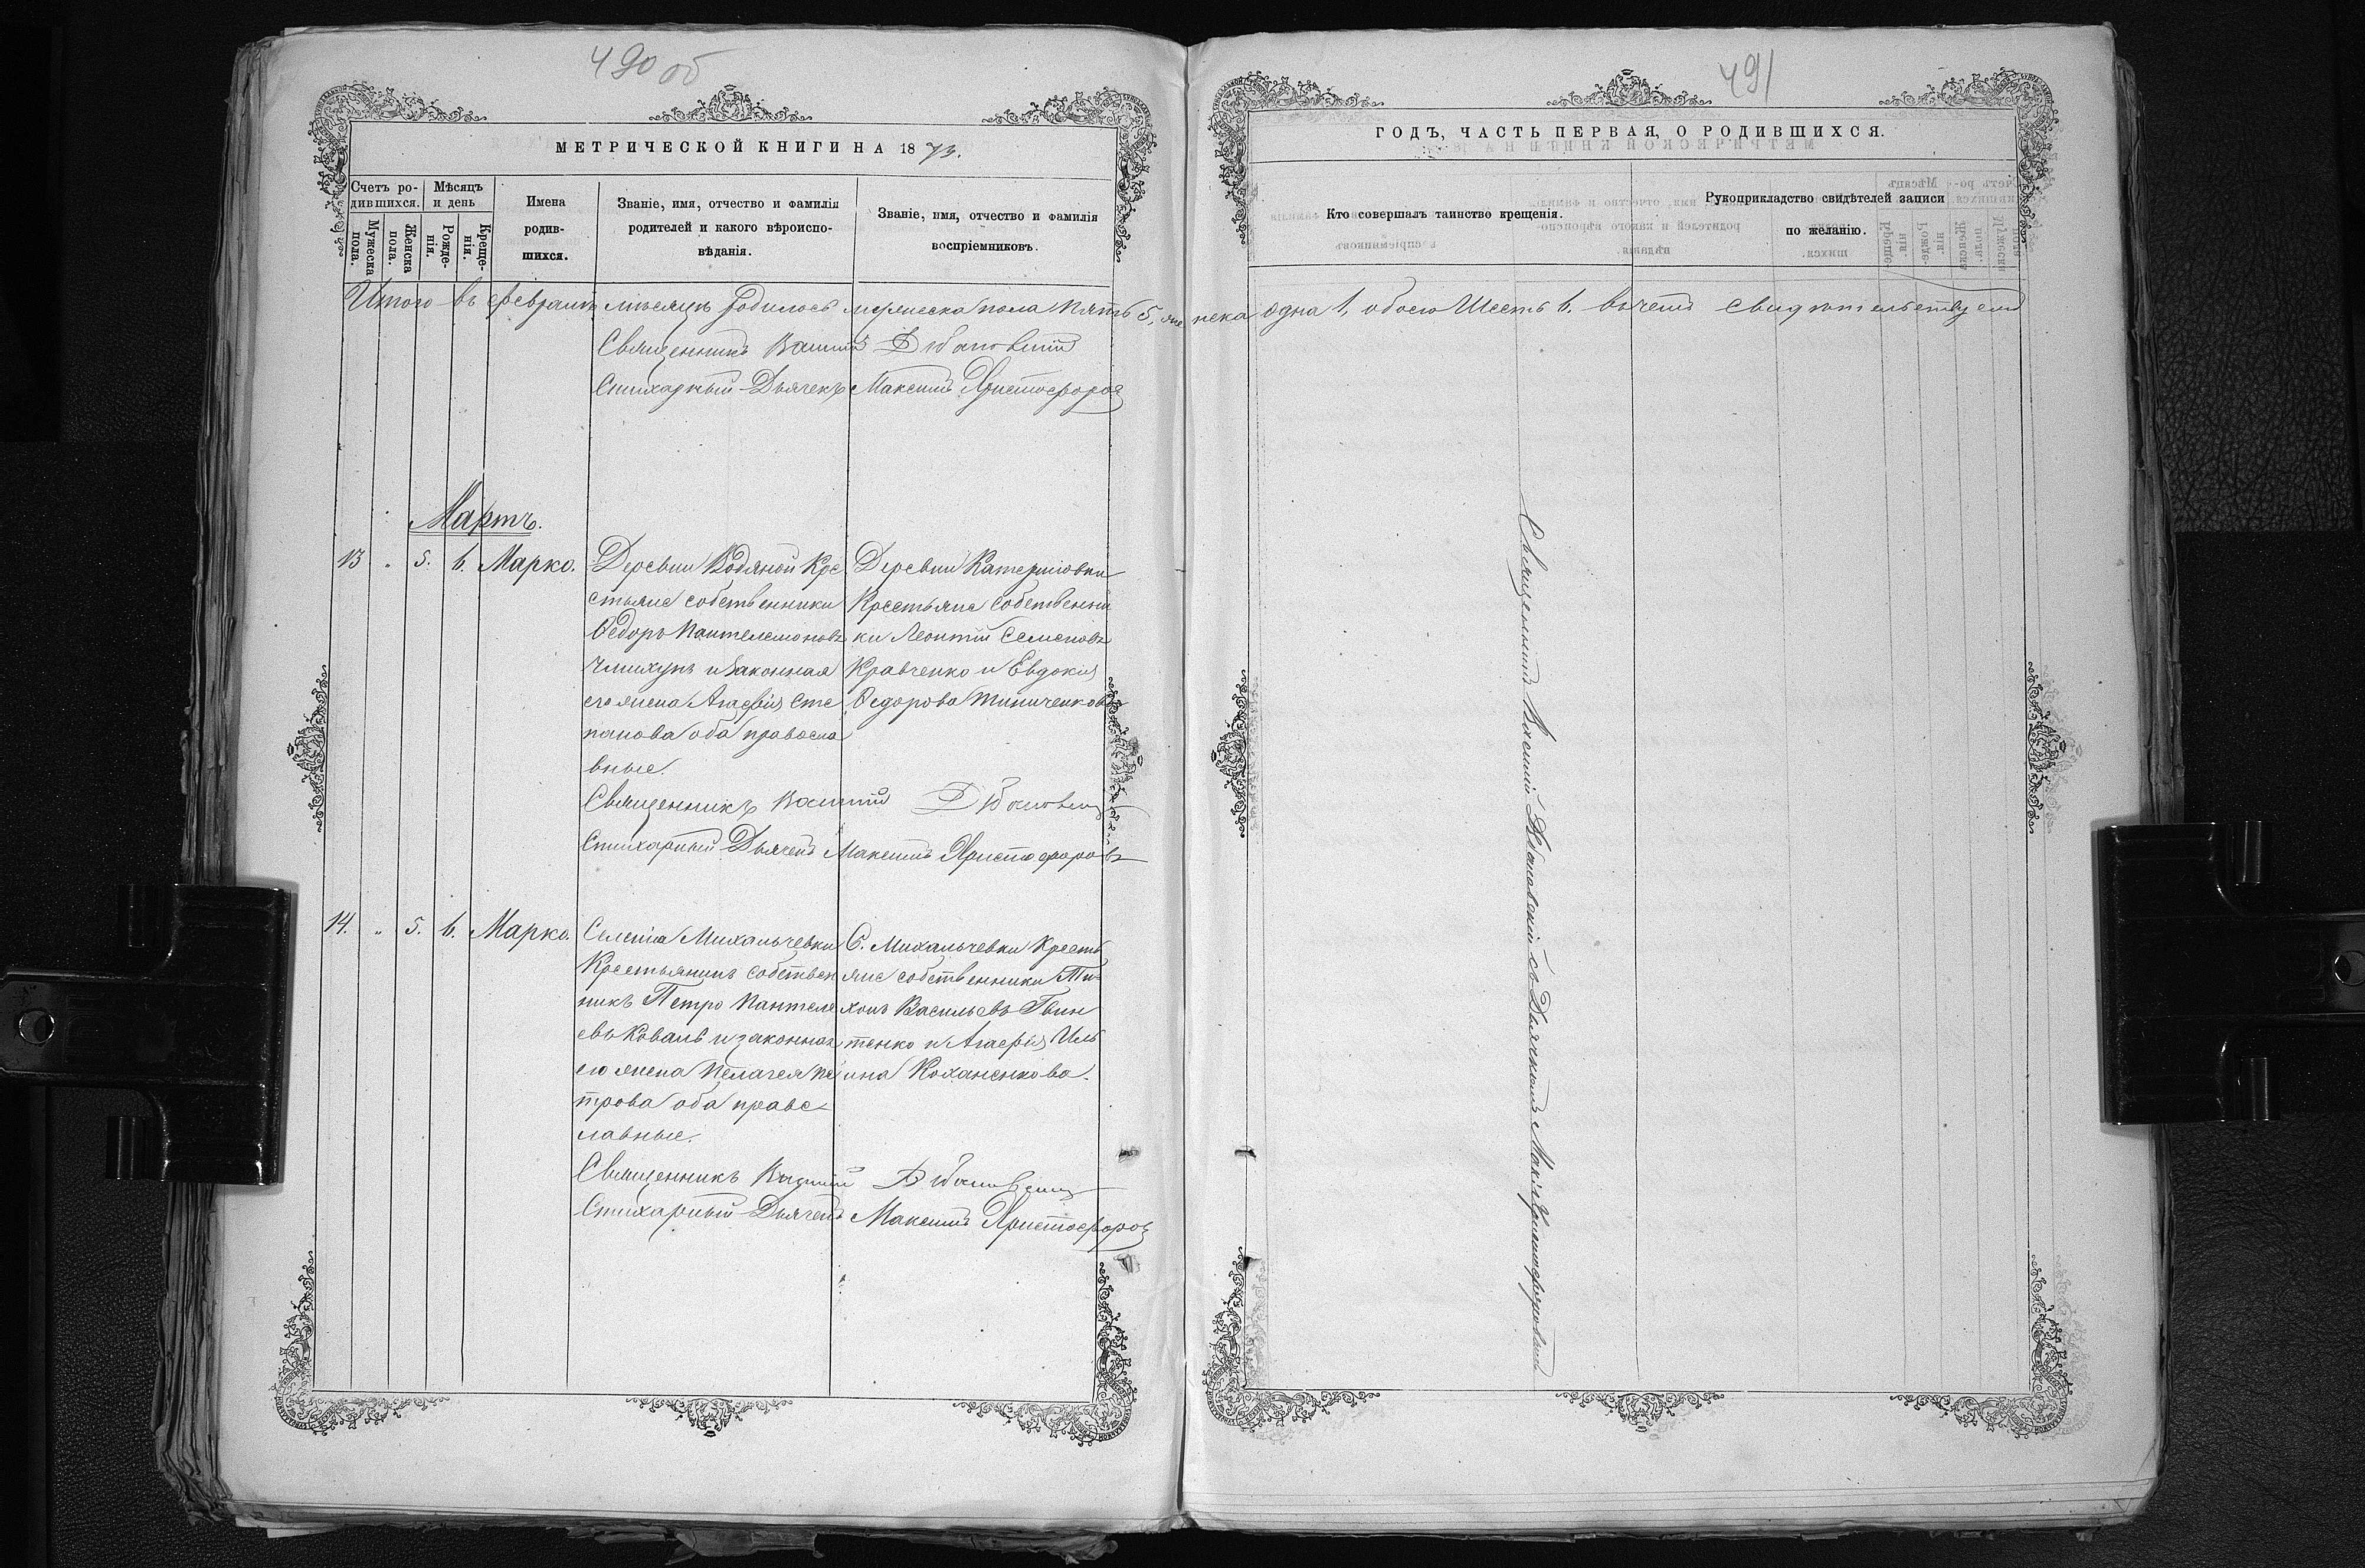 490 об
МЕТРИЧЕСКОЙ КНИГИ НА 1873.
Счетъ ро-
дившихся.
Мѣсяцъ
и день
Мужеска
пола.
Женска
пола.
Рожде-
нія.
Креще-
нія.
Имена
родив-
шихся.
Званіе, имя, отчество и фамилія
родителей и какого вѣроиспо-
вѣданія.
Званіе, имя, отчество и фамилія
воспріемниковъ.
Итого въ февралѣ мѣсяцѣ родилось мужеска пола пять 5, же
Священникъ Василій
Стихарный Дьячекъ Максимъ Христофоровъ
Мартъ.
13 " 5. 6. Марко.
Деревни Водяной Кре
стьяне собственники
Ѳедоръ Пантелемоновъ
и законная
его жена Агафія Сте
панова оба правосла
вные.
Деревни Катериновки
Крестьяне собственни
ки Леонтій Семеновъ
Кравченко и Евдокія
Ѳедорова
Священникъ Василій
Стихарный Дьячекъ Максимъ Христофоровъ
14. " 5. 6. Марко.
Селенія Михальчевки
Крестьянинъ собствен
никъ Петро Пантеле
евъ Коваль и законная
его жена Пелагея Пе
трова оба правос
лавные.
С. Михальчевки Кресть
яне собственники Ти-
хонъ Васильевъ Гвин
тенко и Агафія Иль
ина Коханенкова.
Священникъ Василій
Стихарный Дьячекъ Максимъ Христофоровъ
491
ГОДЪ, ЧАСТЬ ПЕРВАЯ, О РОДИВШИХСЯ.
Кто совершалъ таинство крещенія.
Рукоприкладство свидѣтелей записи
по желанію.
нска одна 1, обоего Шесть 6. въ чемъ свидѣтельствуемъ
Священникъ Василій съ Дьячкомъ Макс. Христофоровымъ